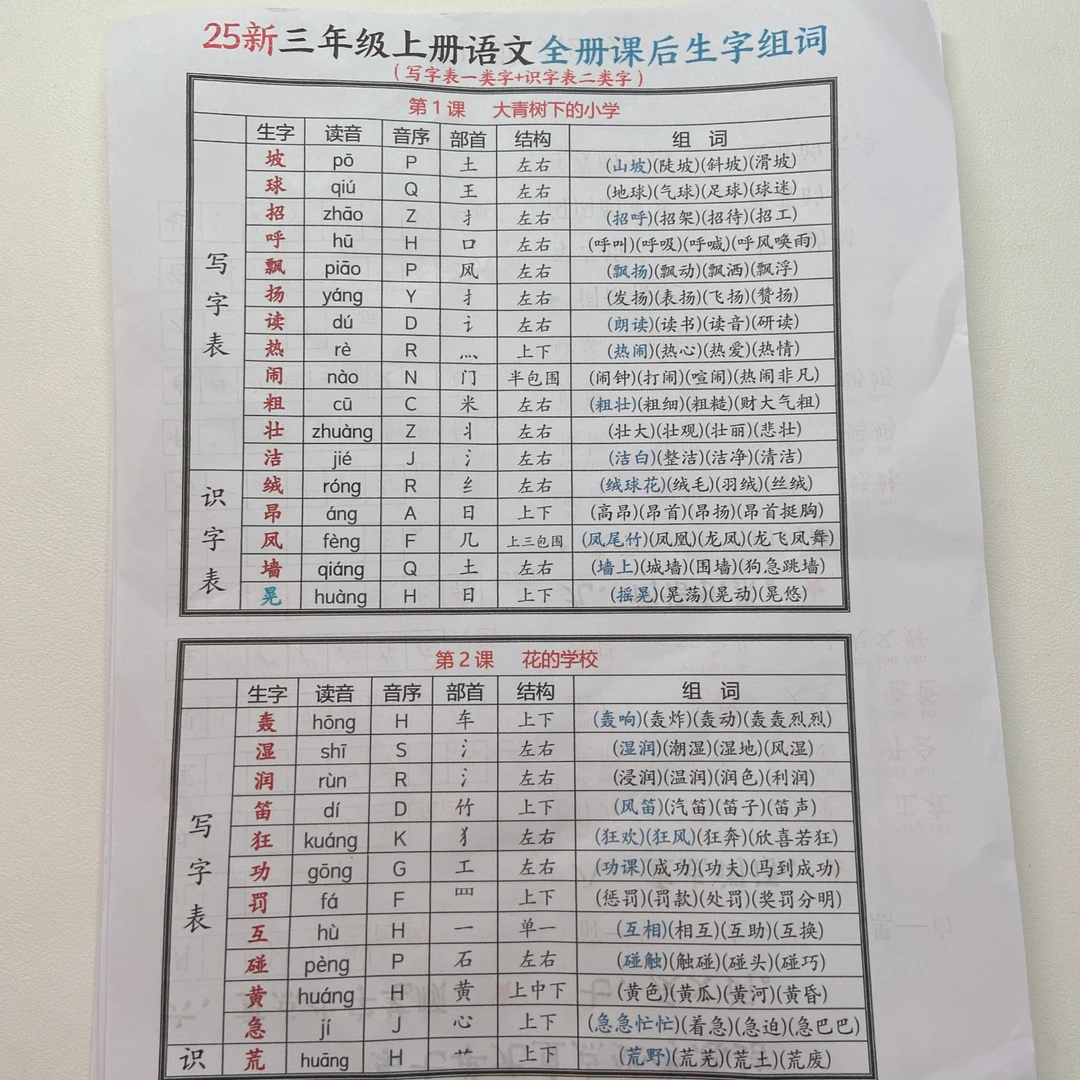 25新三年级上册语文全册课后生字组词
(写字表一类字+识字表二类字)
第1课 大青树下的小学
生字 读音 音序 部首 结构 组 词
写字表
坡 pō P 土 左右 (山坡)(陡坡)(斜坡)(滑坡)
球 qiú Q 王 左右 (地球)(气球)(足球)(球迷)
招 zhāo Z 扌 左右 (招呼)(招架)(招待)(招工)
呼 hū H 口 左右 (呼叫)(呼吸)(呼喊)(呼风唤雨)
飘 piāo P 风 左右 (飘扬)(飘动)(飘洒)(飘浮)
扬 yáng Y 扌 左右 (发扬)(表扬)(飞扬)(赞扬)
读 dú D 讠 左右 (朗读)(读书)(读音)(研读)
热 rè R 灬 上下 (热闹)(热心)(热爱)(热情)
闹 nào N 门 半包围 (闹钟)(打闹)(喧闹)(热闹非凡)
粗 cū C 米 左右 (粗壮)(粗细)(粗糙)(财大气粗)
壮 zhuàng Z 丬 左右 (壮大)(壮观)(壮丽)(悲壮)
洁 jié J 氵 左右 (洁白)(整洁)(洁净)(清洁)
识字表
绒 róng R 纟 左右 (绒球花)(绒毛)(羽绒)(丝绒)
昂 áng A 日 上下 (高昂)(昂首)(昂扬)(昂首挺胸)
凤 fèng F 几 上三包围 (凤尾竹)(凤凰)(龙凤)(龙飞凤舞)
墙 qiáng Q 土 左右 (墙上)(城墙)(围墙)(狗急跳墙)
晃 huàng H 日 上下 (摇晃)(晃荡)(晃动)(晃悠)
第2课 花的学校
生字 读音 音序 部首 结构 组 词
写字表
轰 hōng H 车 上下 (轰响)(轰炸)(轰动)(轰轰烈烈)
湿 shī S 氵 左右 (湿润)(潮湿)(湿地)(风湿)
润 rùn R 氵 左右 (浸润)(温润)(润色)(利润)
笛 dí D 竹 上下 (风笛)(汽笛)(笛子)(笛声)
狂 kuáng K 犭 左右 (狂欢)(狂风)(狂奔)(欣喜若狂)
功 gōng G 工 左右 (功课)(成功)(功夫)(马到成功)
罚 fá F 罒 上下 (惩罚)(罚款)(处罚)(奖罚分明)
互 hù H 一 单一 (互相)(相互)(互助)(互换)
碰 pèng P 石 左右 (碰触)(触碰)(碰头)(碰巧)
黄 huáng H 黄 上中下 (黄色)(黄瓜)(黄河)(黄昏)
急 jí J 心 上下 (急急忙忙)(着急)(急迫)(急巴巴)
识
荒 huāng H 艹 上下 (荒野)(荒芜)(荒土)(荒废)